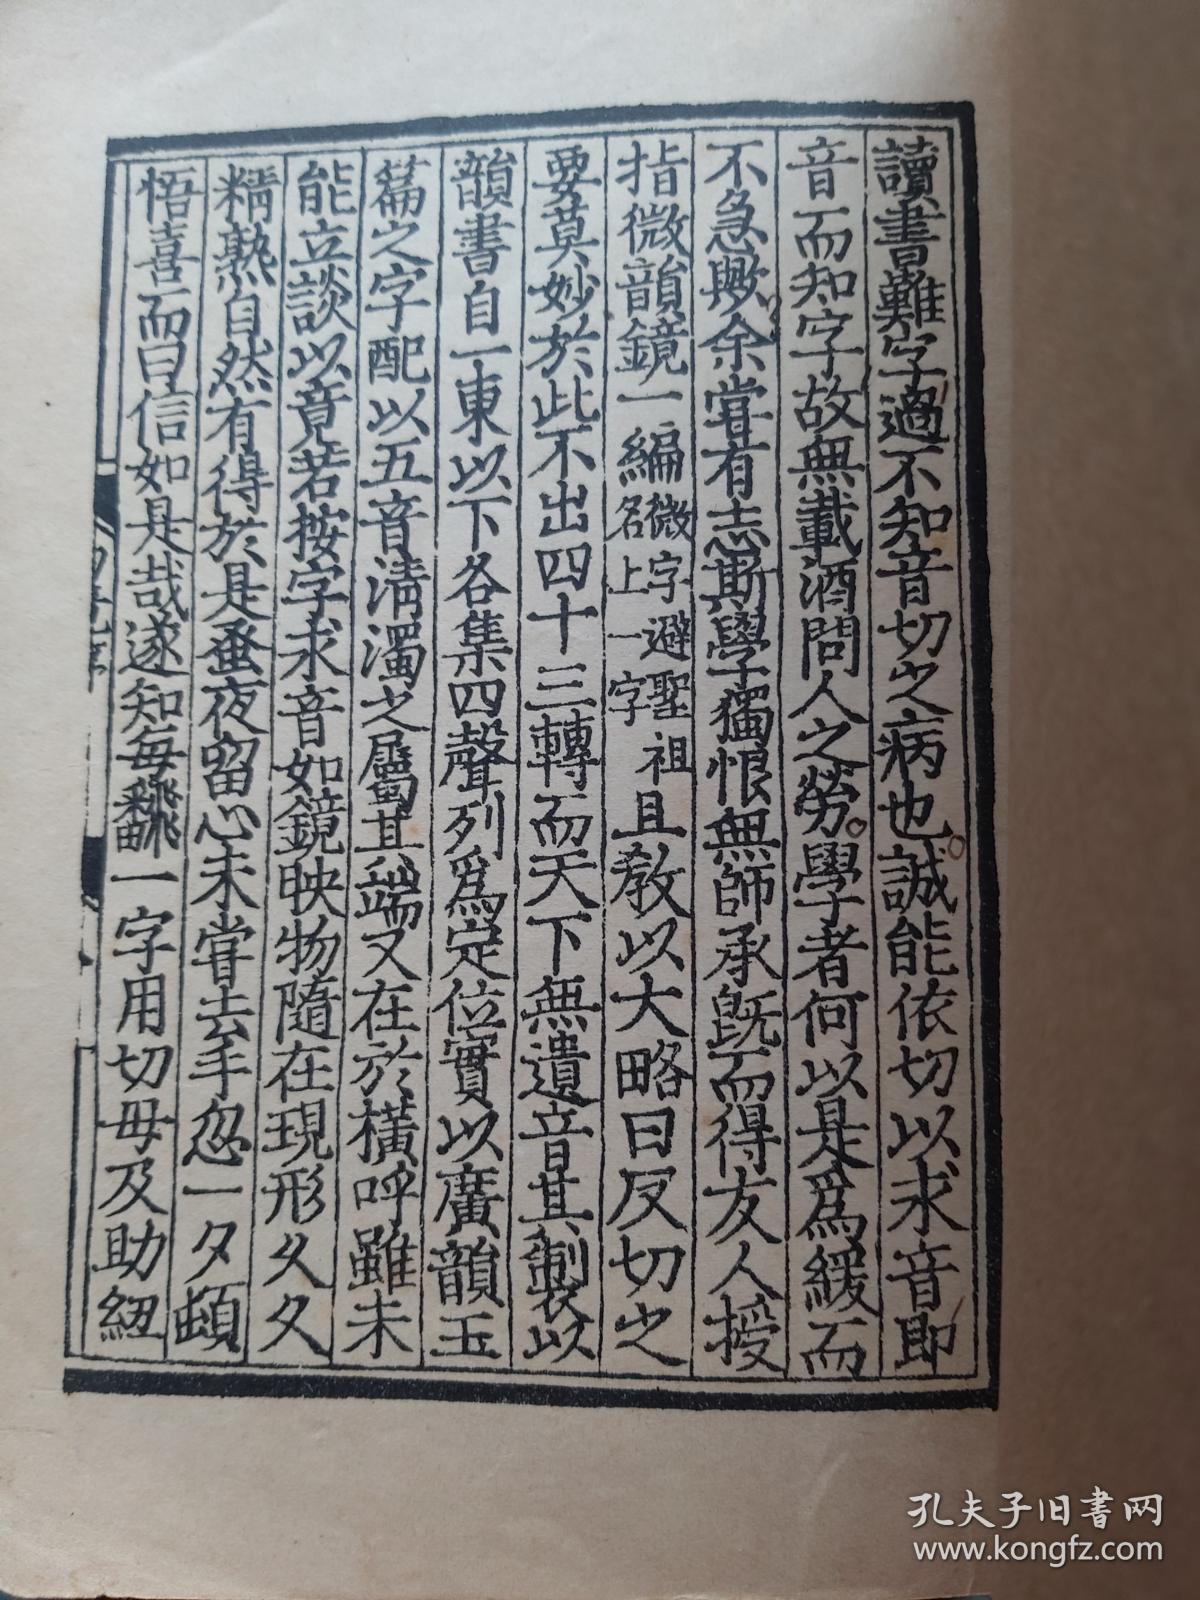 讀書難字過不知音切之病也誠能依切以求音即
音而知字故無載酒問人之勞學者何以是爲緩而
不急歟余嘗有志斯學獨恨無師承旣而得友人授
指微韻鏡一編微字避聖祖名上一字且教以大略曰反切之
要莫妙於此不出四十三轉而天下無遺音其製以
韻書自一東以下各集四聲列爲定位實以廣韻玉
篇之字配以五音清濁之屬其端又在於橫呼雖未
能立談以竟若按字求音如鏡映物隨在現形久久
精熟自然有得於是蚤夜留心未嘗去手忽一夕頓
悟喜而曰信如是哉遂知每翻一字用切母及助紐
孔夫子旧书网
www.kongfz.com